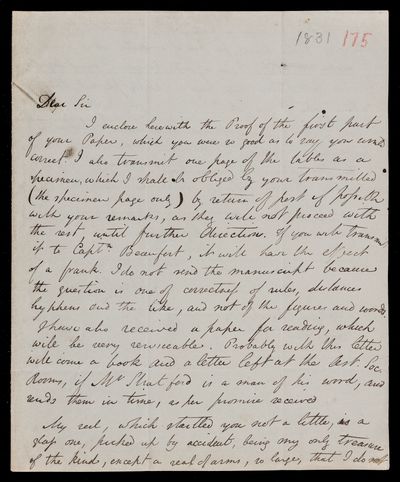 1831 175
Dear Sir
I enclose herewith the Proof of the first part
of your Paper, which you were so good as to say, you would
correct. I also transmit one page of the tables as a
specimen, which I shall be obliged by your transmitting
(the specimen page only) by return of post if possible
with your remarks, as they will not proceed with
the rest, until further directions. If you will transmit
it to Captn Beaufort, it will have the effect
of a frank. I do not send the manuscript because
the question is one of correctness of rules, distances
hyphens and the like, and not of the figures and words.
I have also received a paper for reading, which
will be very serviceable. Probably with this letter
will come a book and a letter left at the Ast. Soc.
Rooms, if Mr Stratford is a man of his word, and
sends them in time, as per promise received
My seal, which startled you not a little, is a
glass one, picked up by accident, being my only treasure
of the kind, except a seal of arms, so large, that I do not